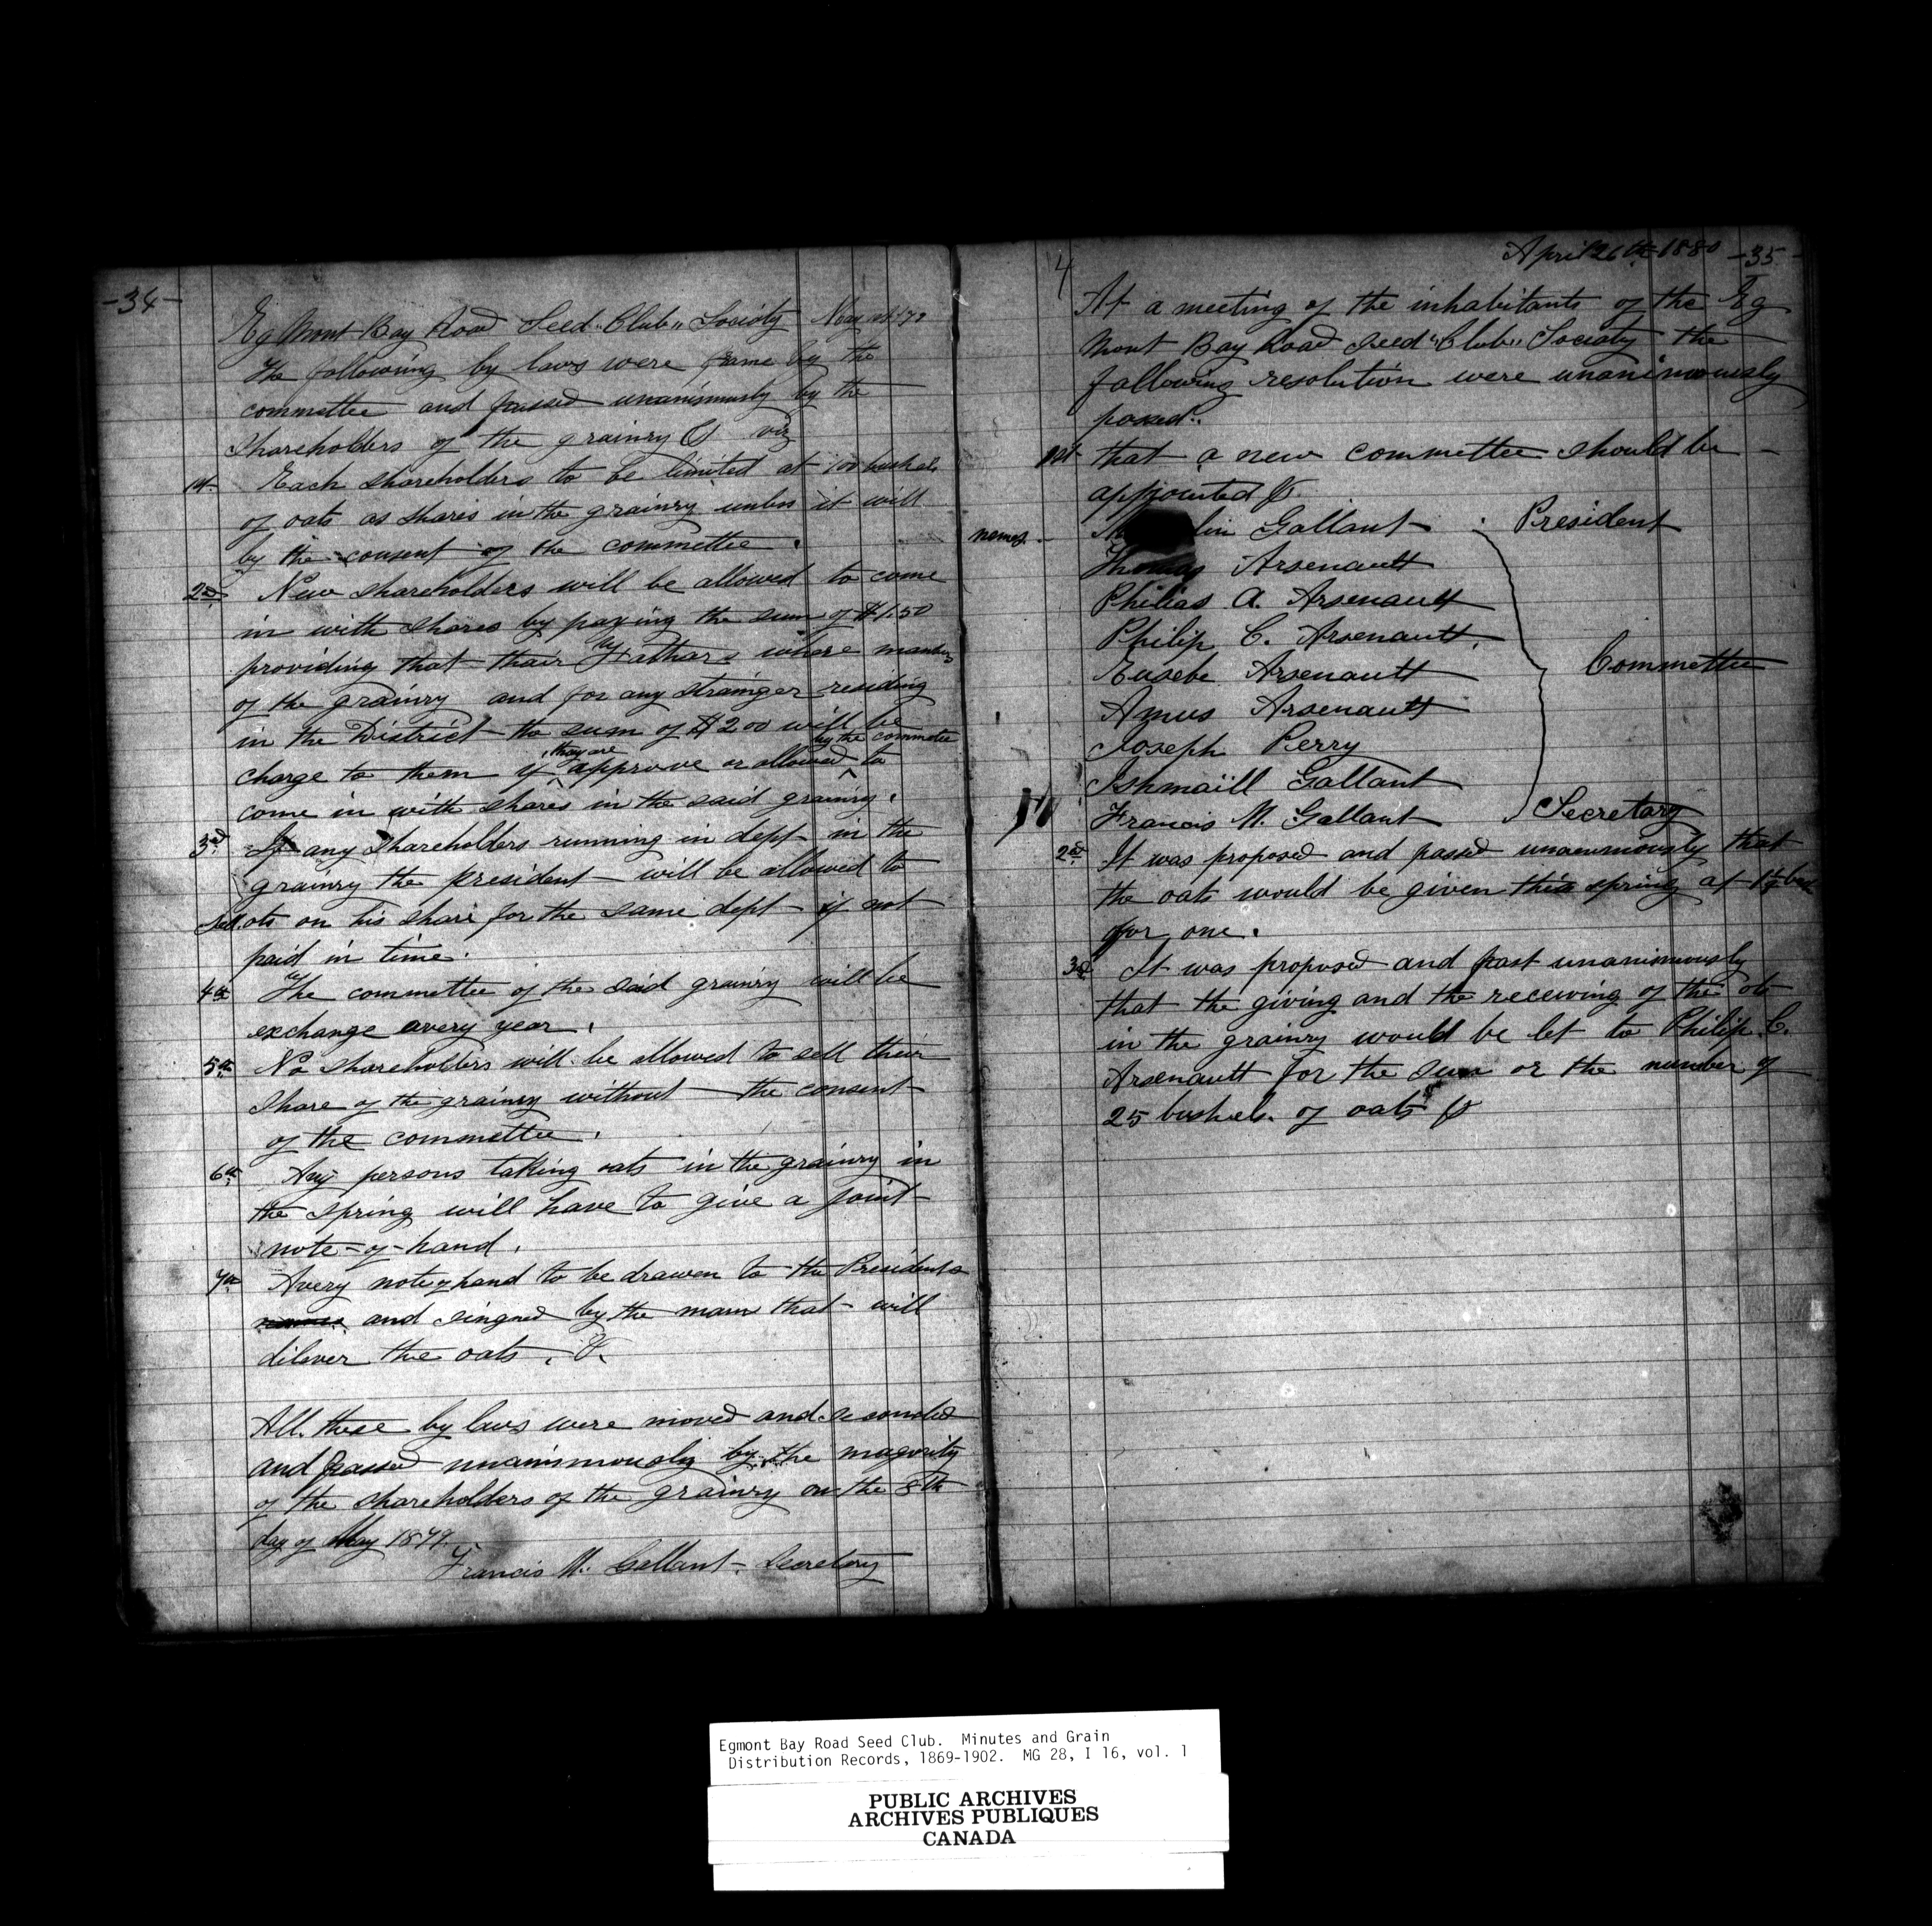 -34-
Eg Mont Bay Road Seed "Club" Society May
The following by laws were frame by the
committee and passed unanimusly by the
shareholders of the grainry & viz
1st Each shareholders to be limited at 100 bushels
of oats as shares in the grainry unless it will
by the consent of the committee.
2nd New shareholders will be allowed to come
in with shares by paying the sum of $1.50
providing that their Fathers where members
of the grainry and for any strainger residing
in the District the sum of $2.00 will be
they are by the committee
charge to them if approve or allowed to
come in with shares in the said grainry.
3rd If any shareholders running in dept in the
grainry the president will be allowed to
sell ots on his share for the same dept if not
paid in time.
4th The committee of the said grainry will be
exchange avery year.
5th No shareholders will be allowed to sell their
share of the grainry without the consent
of the committee.
6th Any persons taking oats in the grainry in
the spring will have to give a joint
note-of-hand.
7th Avery note of hand to be drawen to the Presidents
and singned by the man that will
dilever the oats. &.
All these by laws were moved and seconded
and passed unainimously by the magority
of the shareholders of the grainry on the 8th
day of May 1879.
Francis M. Gallant. Secretary
April 26th 1880 -35-
4
At a meeting of the inhabitants of the Eg
Mont Bay Road Seed "Club" Society the
following resolution were unanimously
passed.
1st that a new committee should be
appointed &.
names. Gallant President
Thomas Arsenault
Philias A. Arsenault
Philip C. Arsenault
Eusebe Arsenault Committee
Amus Arsenault
Joseph Perry
Ishmaïll Gallant
Francis M. Gallant Secretary
2nd It was proposed and passed unanimously that
the oats would be given this spring at 1½ bus
for one.
3rd It was proposed and past unanimously
that the giving and the receiving of the ots
in the grainry would be let to Philip C.
Arsenault for the sum or the number of
25 bushels of oats &
Egmont Bay Road Seed Club. Minutes and Grain
Distribution Records, 1869-1902. MG 28, I 16, vol. 1
PUBLIC ARCHIVES
ARCHIVES PUBLIQUES
CANADA